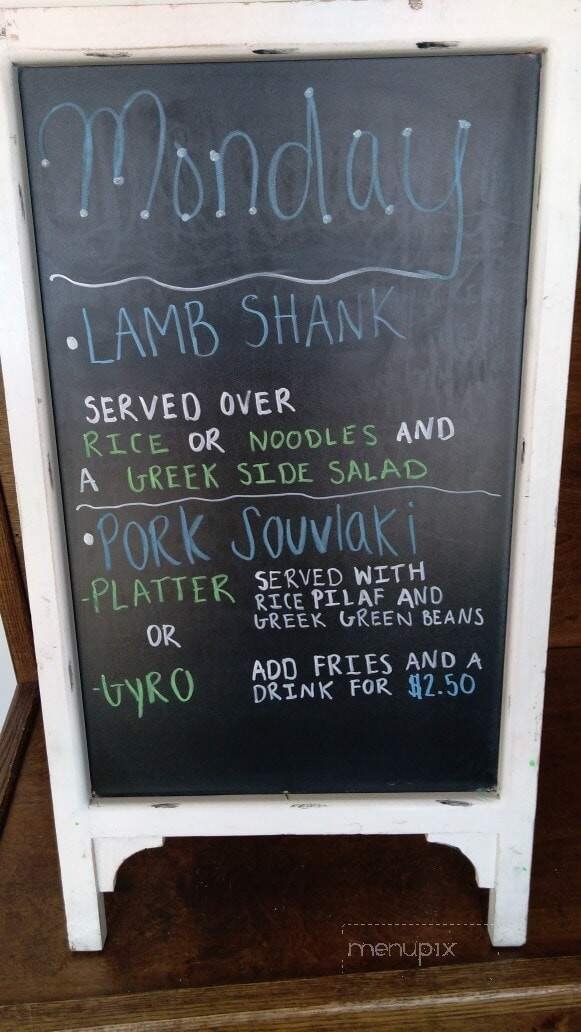 Monday
• LAMB SHANK
SERVED OVER
RICE OR NOODLES AND
A GREEK SIDE SALAD
• PORK Souvlaki
-PLATTER SERVED WITH
RICE PILAF AND
GREEK GREEN BEANS
OR
-GYRO ADD FRIES AND A
DRINK FOR $2.50
menupix